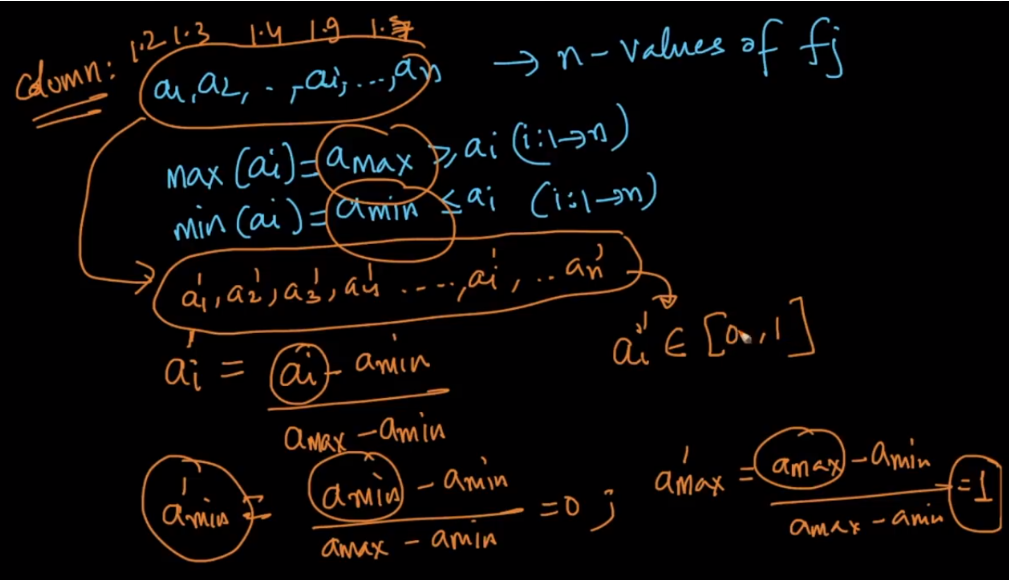 1.2 1.3 1.4 1.9 1.5
Column: a1, a2, . . , ai, ..., an → n-values of fj
max (ai) = amax ≥ ai (i:1→n)
min (ai) = amin ≤ ai (i:1→n)
a1', a2', a3', a4' ....., ai', .. an'
ai' ∈ [0, 1]
ai' = (ai - amin) / (amax - amin)
amin' = (amin - amin) / (amax - amin) = 0 ; amax' = (amax - amin) / (amax - amin) = 1